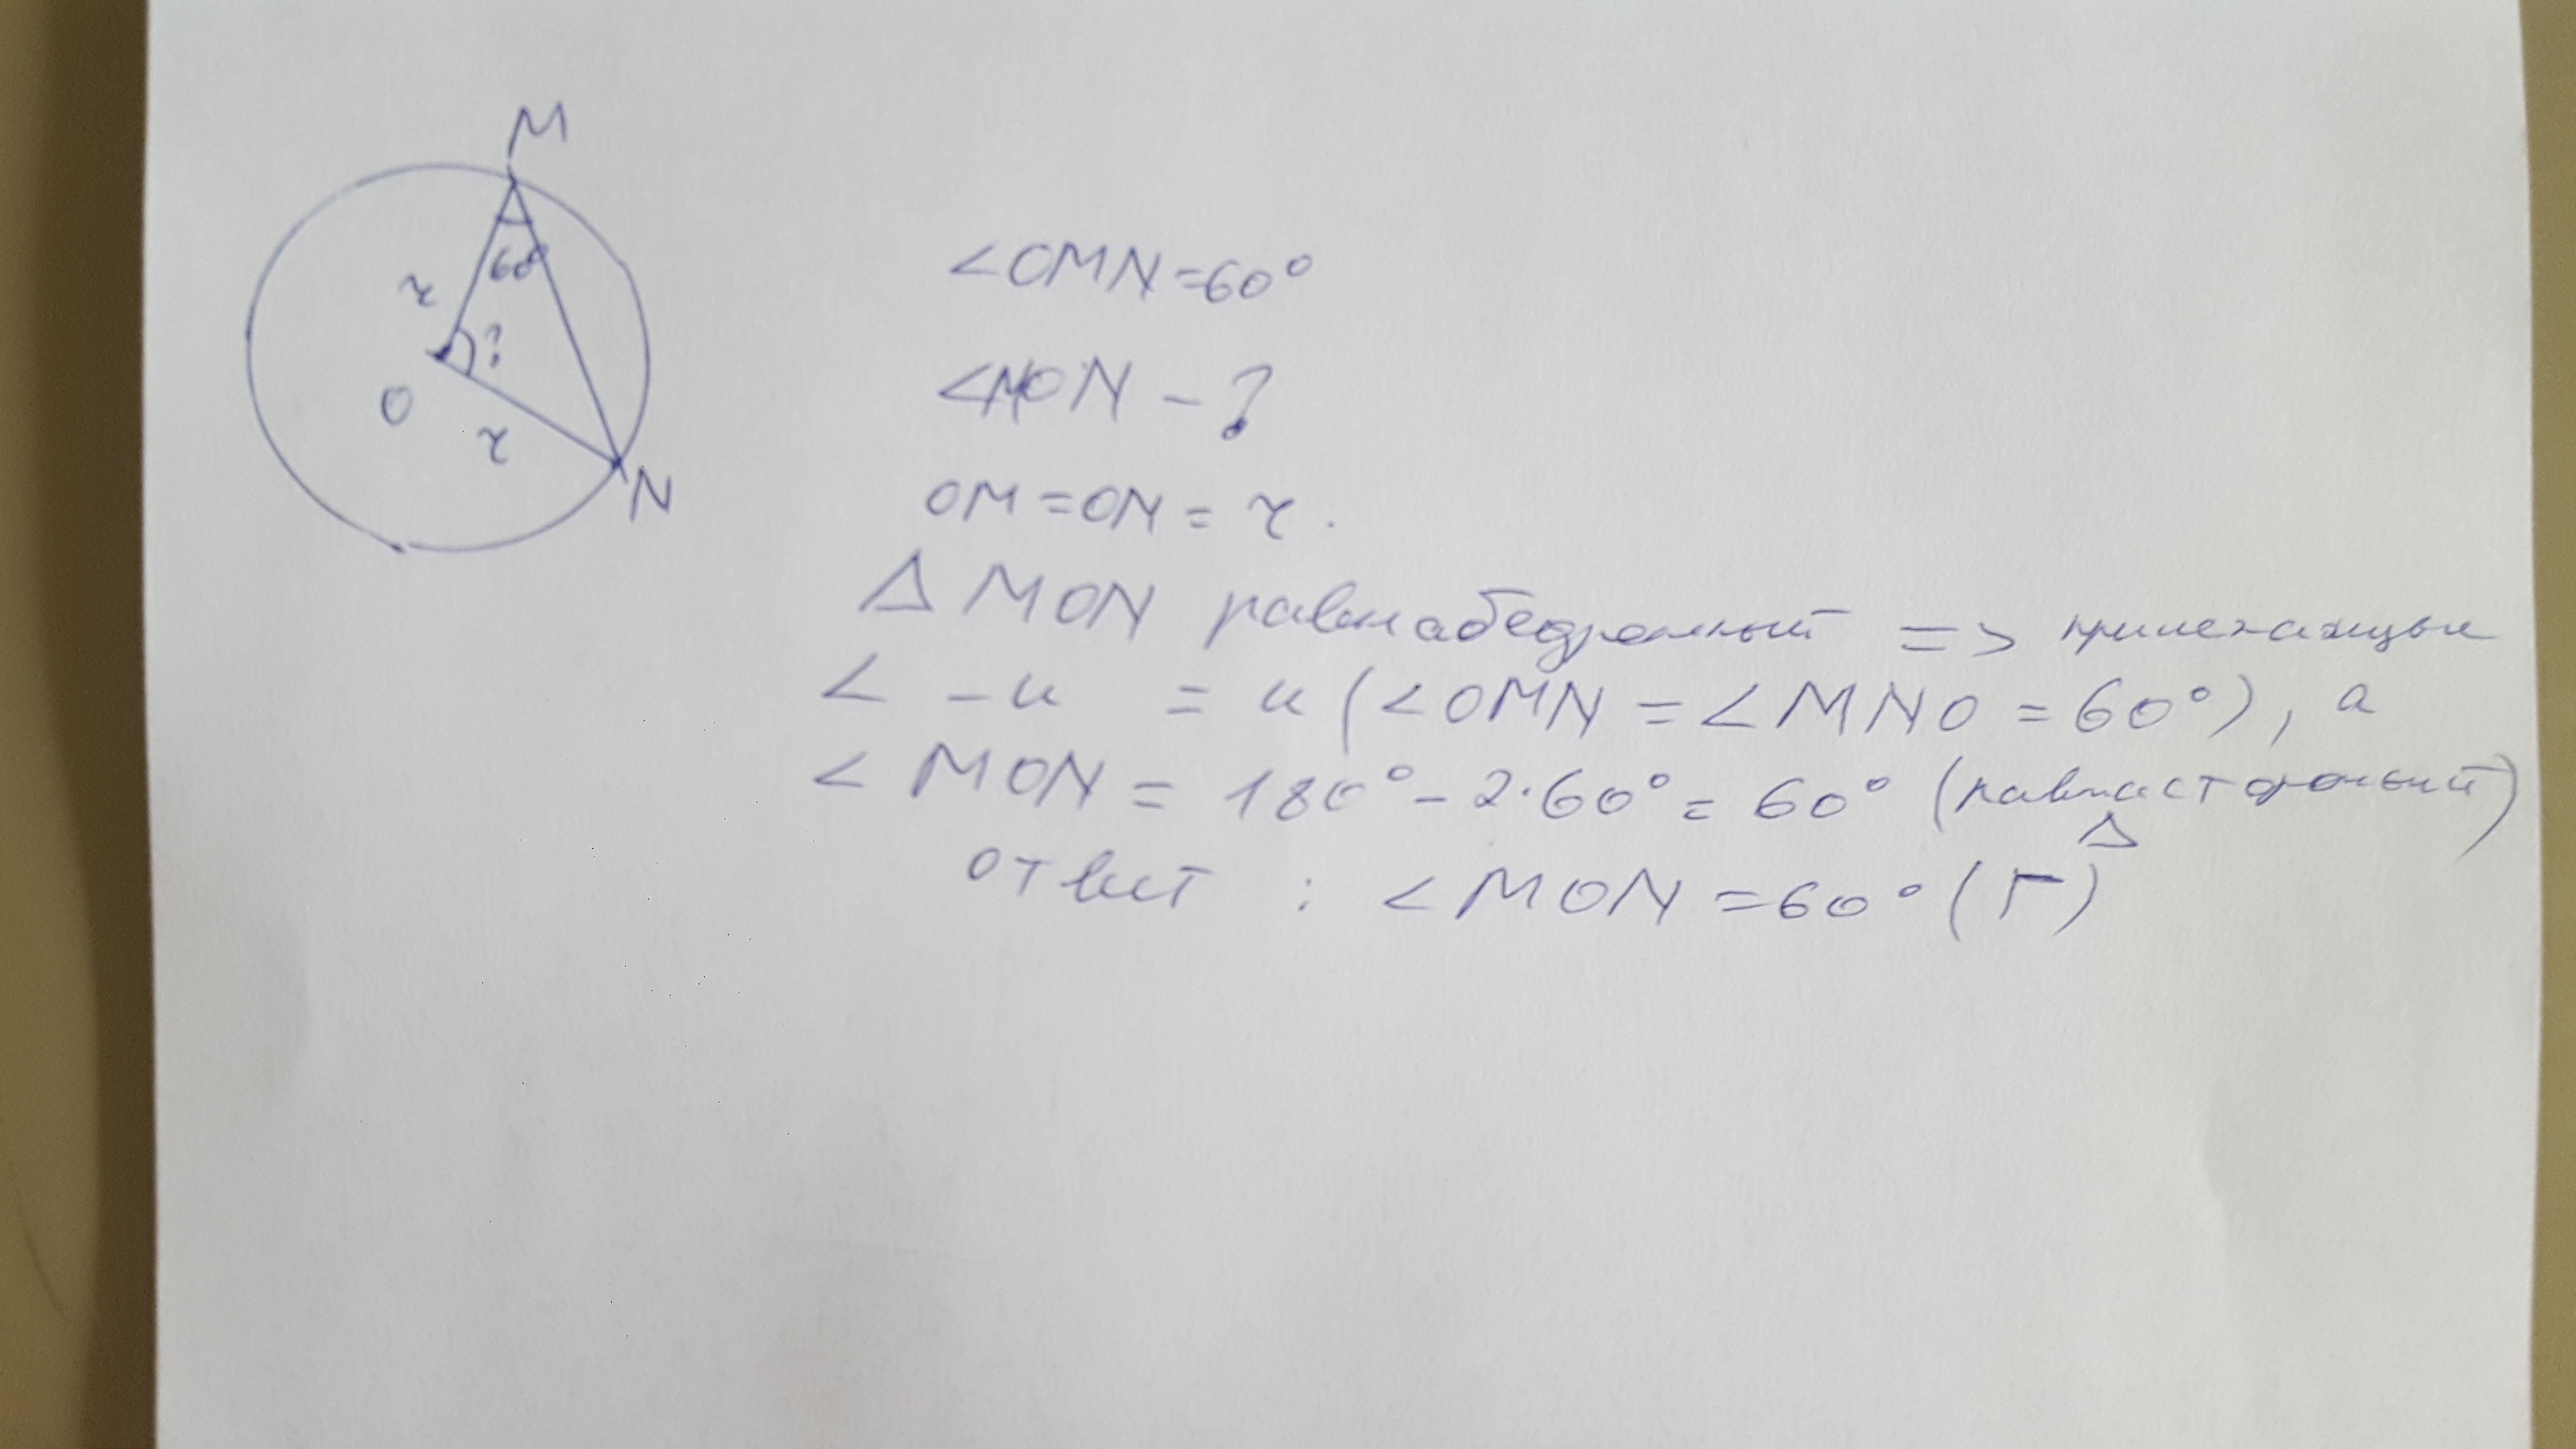 M
60°
r
?
O
r
N
∠OMN=60°
∠MON - ?
OM=ON= r.
Δ MON равнабедренный => прилежащые
∠ -и = и (∠OMN = ∠MNO = 60°), а
∠ MON = 180° - 2·60° = 60° (равнасторонный)
Δ
ответ : ∠MON =60° (Г)